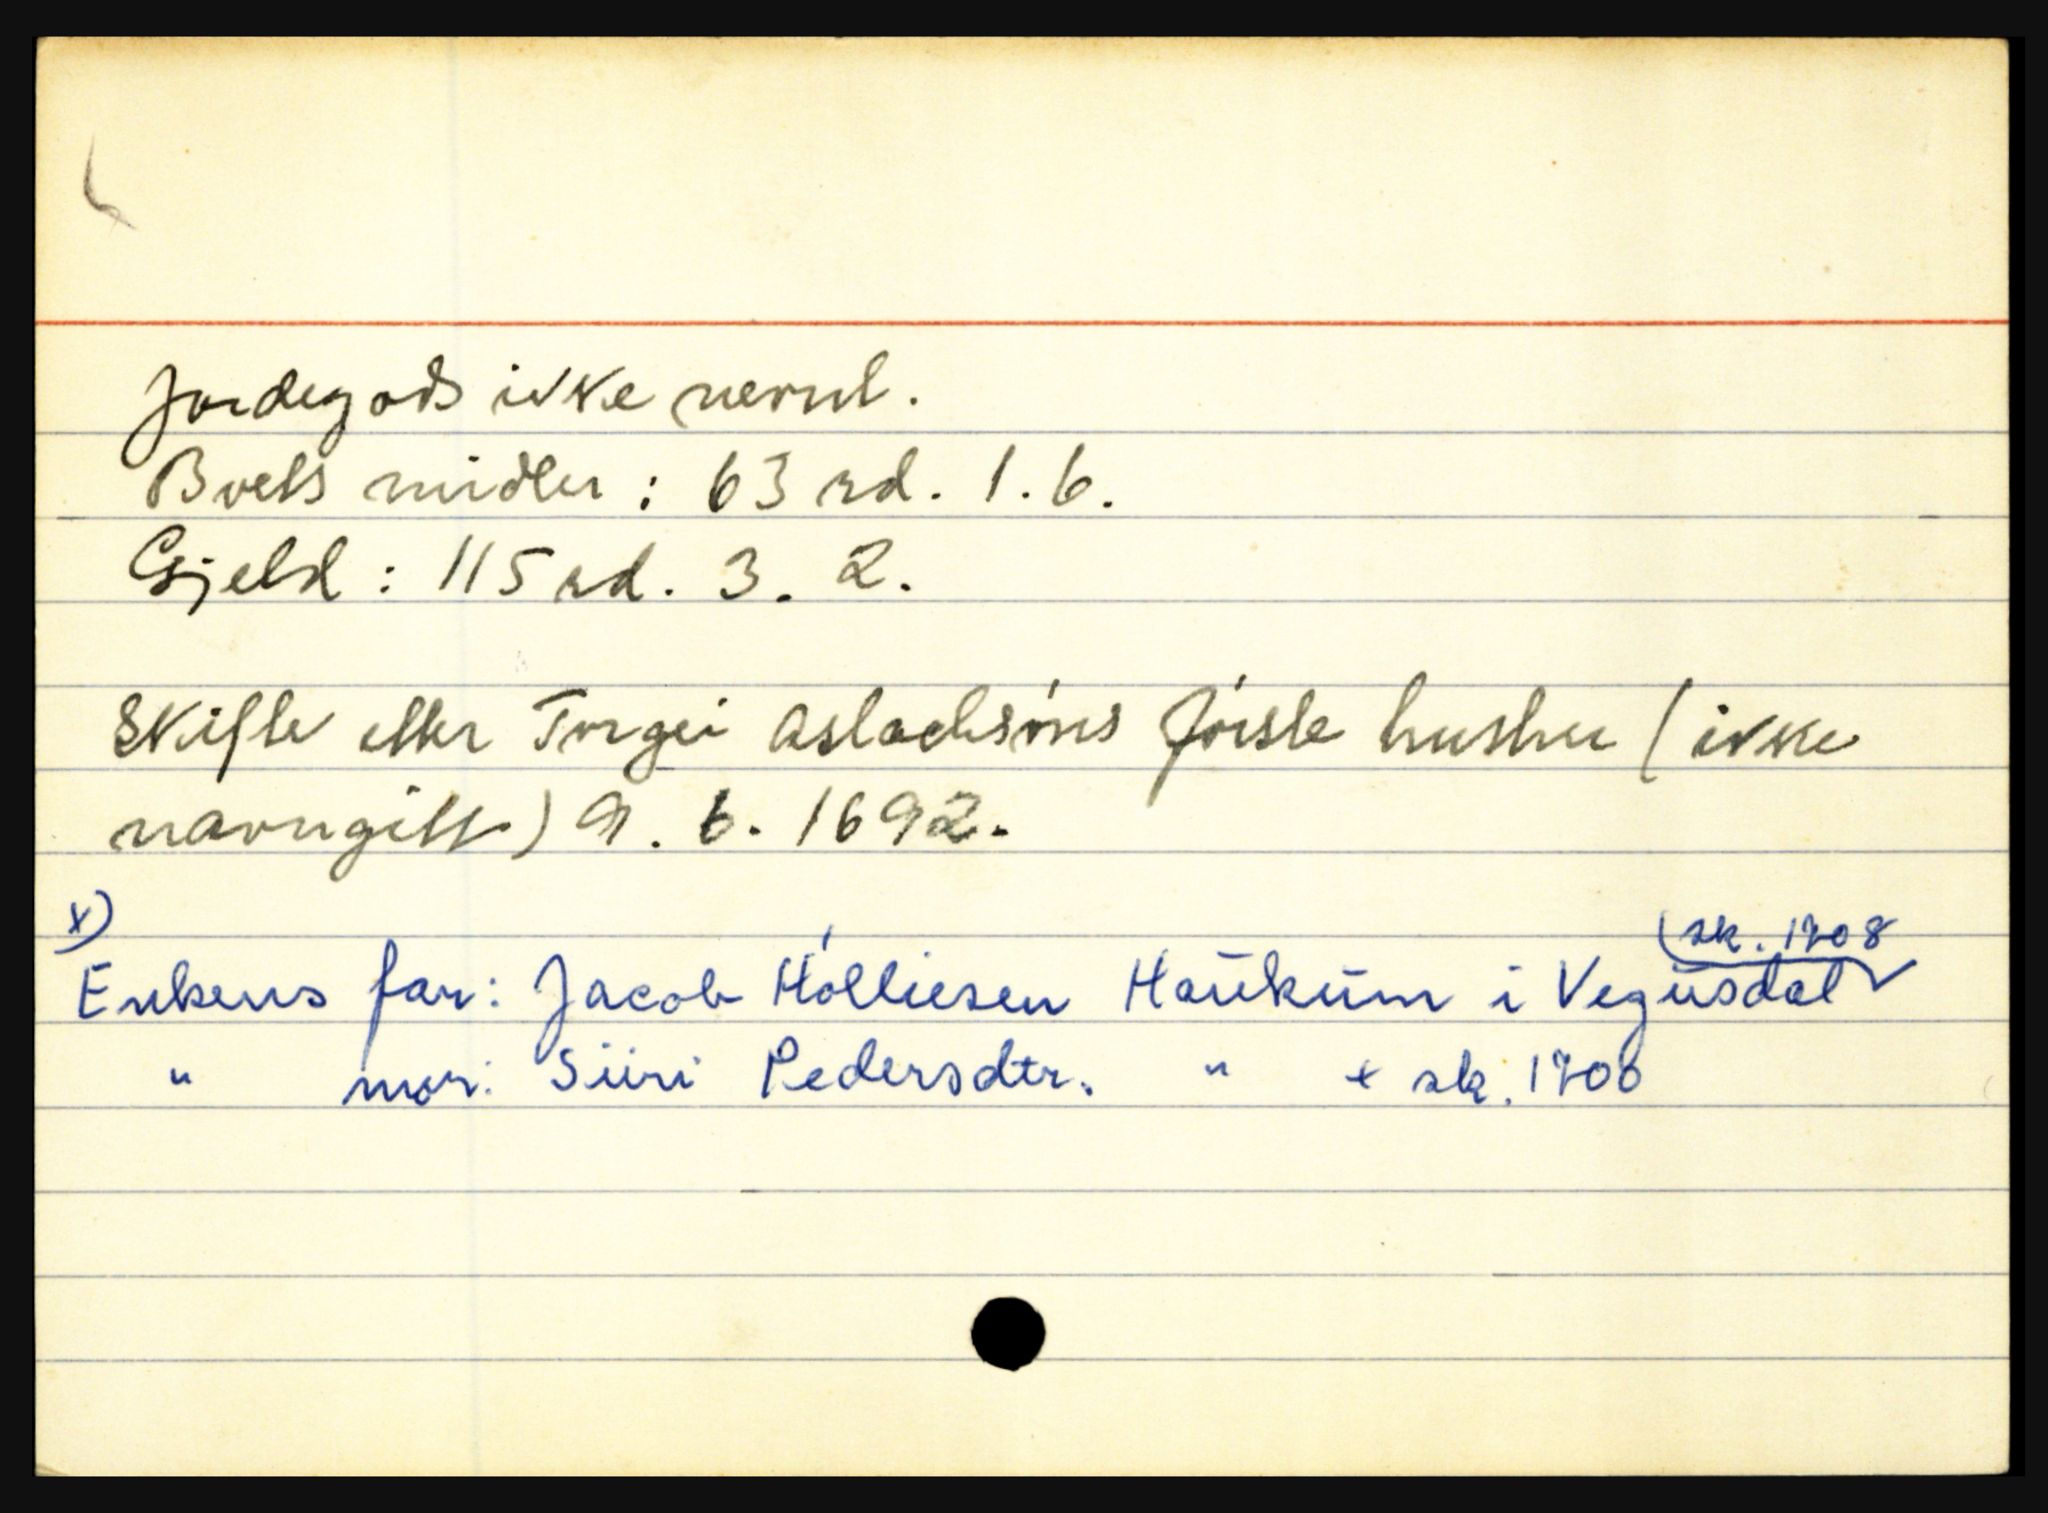 Jordegods ikke nevnt.
Boets midler: 63 rd. 1. 6.
Gjeld: 115 rd. 3. 2.
Skifte etter Torgei Aslachsøns første hustru (ikke
navngitt) 9. 6. 1692.
x)
(sk. 1708
Enkens far: Jacob Hølliesen Haukum i Vegusdal
" mor: Siiri Pedersdtr. " + sk. 1700